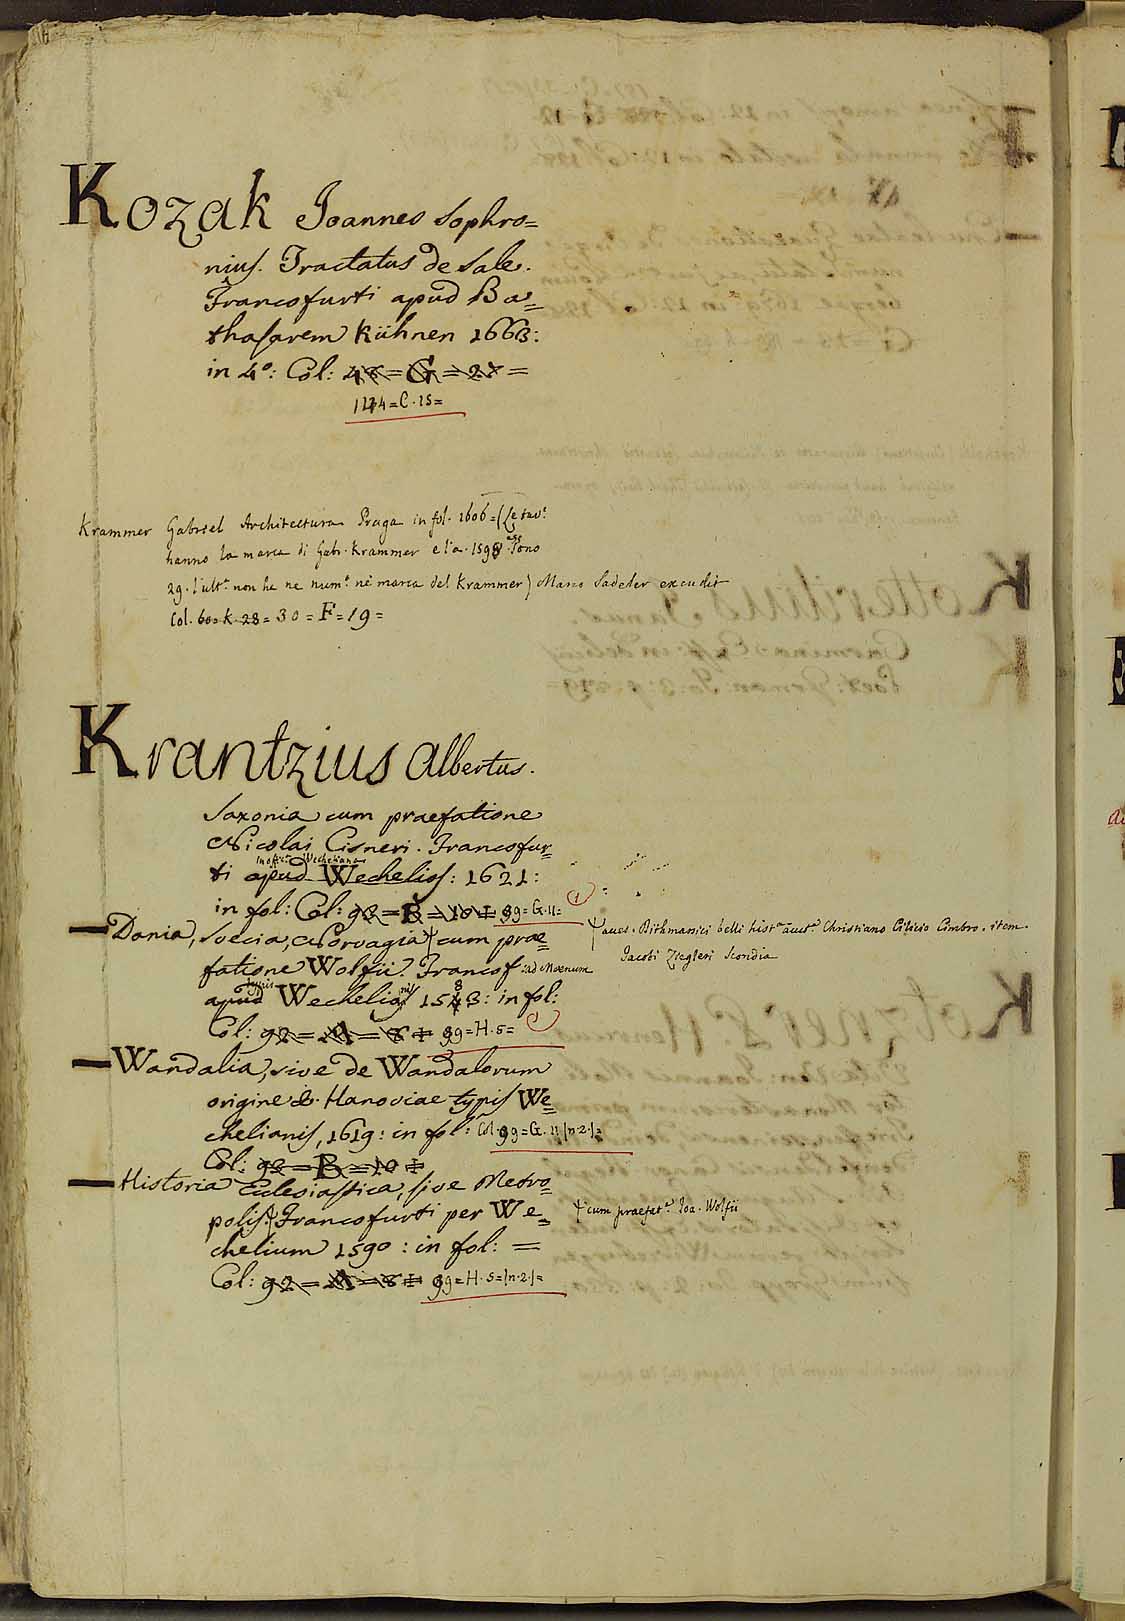 Kozak Joannes Sophro=
nius. Tractatus de Sale.
Francofurti apud Ba=
thasarem Kühnen 1663:
in 4°: Col: 48=G=28=
=C.15=
Krammer Gabriel Architectura Praga in fol. 1606=(Le tav.e
hanno la marca di Gabr. Krammer e l'a. 1598
29. l'ult.a non ha ne num.o ne marca del Krammer) Marco Sadeler excudit
Col. 60=K.28=30=F=19=
Krantzius Albertus.
Saxonia cum praefatione
Nicolai Cisneri. Francofur=
in offic.a Wecheliana
ti apud Wechelios: 1621:
in fol: Col: 92=B=10= 99=G.11= 1
Dania, Svecia, Norvagia cum prae=
fatione Wolfii. Francof: ad Moenum
typis
apud Wechelios 1583: in fol:
Col: 92=A=8= 99=H.5=
aues. Dithmarsici belli hist.a auct.e Christiano Cilicio Cimbro. item
Jacobi Ziegleri Scondia
Wandalia, sive de Wandalorum
origine &. Hanoviae typis We=
chelianis, 1619: in fol: Col. 99=G.11(n.2.)=
Col: 92=B=10=
Historia Eclesiastica, sive Metro=
polis. Francofurti per We=
cum praefat.e Joa. Wolfii
chelium 1590: in fol: =
Col: 92=A=8= 99=H.5=(n.2.)=